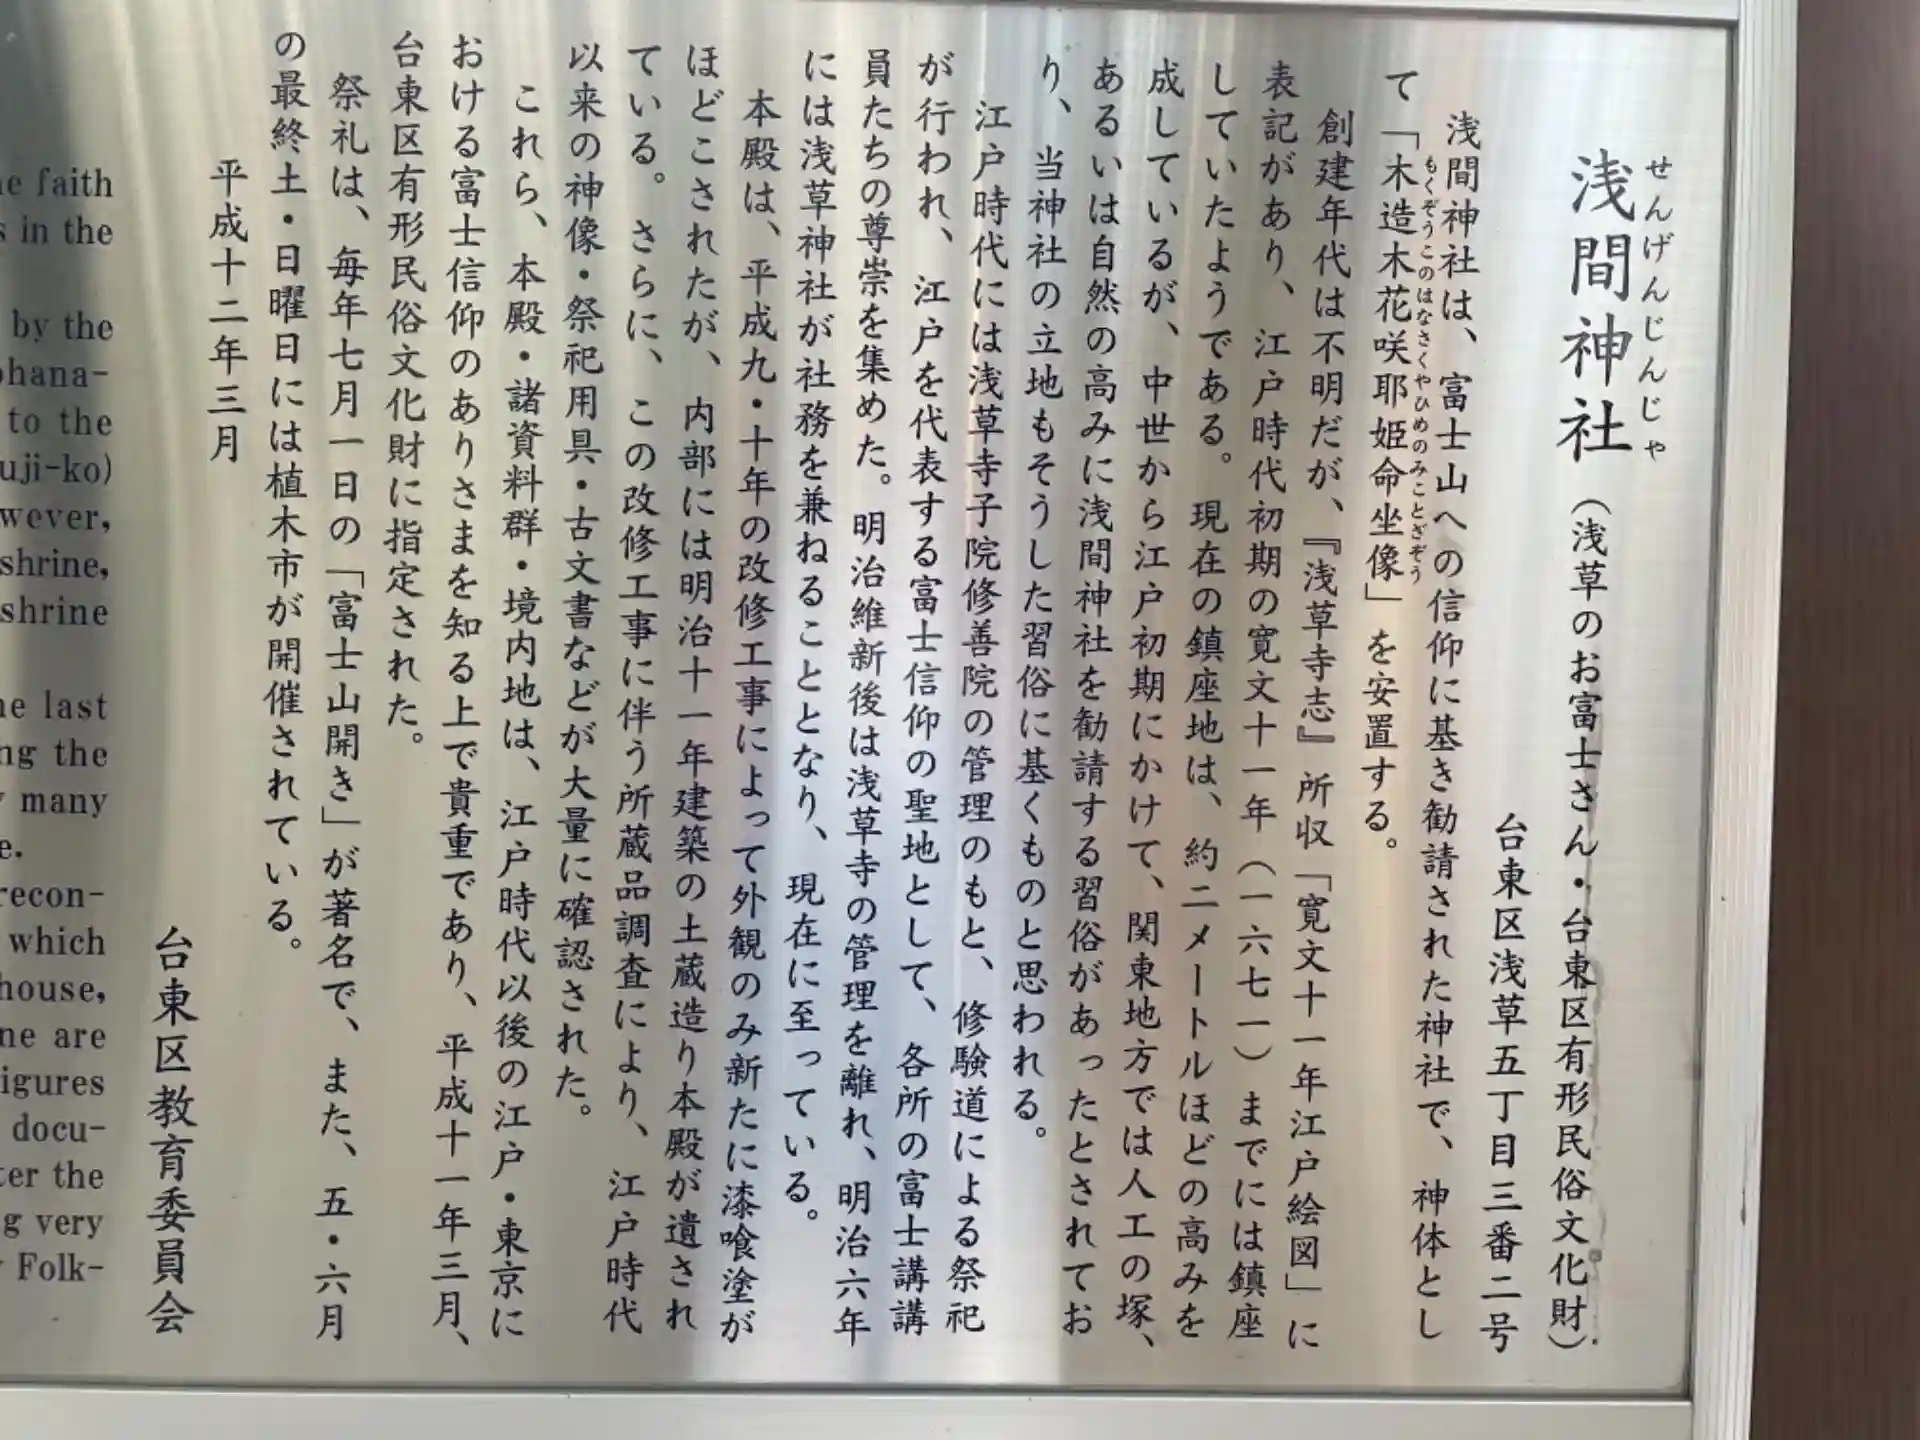 せんげんじんじゃ
浅間神社（浅草のお富士さん・台東区有形民俗文化財）
台東区浅草五丁目三番二号
浅間神社は、富士山への信仰に基き勧請された神社で、神体とし
もくぞうこのはなさくやひめのみことざぞう
て「木造木花咲耶姫命坐像」を安置する。
創建年代は不明だが、『浅草寺志』所収「寛文十一年江戸絵図」に
表記があり、江戸時代初期の寛文十一年（一六七一）までには鎮座
していたようである。現在の鎮座地は、約二メートルほどの高みを
成しているが、中世から江戸初期にかけて、関東地方では人工の塚、
あるいは自然の高みに浅間神社を勧請する習俗があったとされてお
り、当神社の立地もそうした習俗に基くものと思われる。
江戸時代には浅草寺子院修善院の管理のもと、修験道による祭祀
が行われ、江戸を代表する富士信仰の聖地として、各所の富士講講
員たちの尊崇を集めた。明治維新後は浅草寺の管理を離れ、明治六年
には浅草神社が社務を兼ねることとなり、現在に至っている。
本殿は、平成九・十年の改修工事によって外観のみ新たに漆喰塗が
ほどこされたが、内部には明治十一年建築の土蔵造り本殿が遺され
ている。さらに、この改修工事に伴う所蔵品調査により、江戸時代
以来の神像・祭祀用具・古文書などが大量に確認された。
これら、本殿・諸資料群・境内地は、江戸時代以後の江戸・東京に
おける富士信仰のありさまを知る上で貴重であり、平成十一年三月、
台東区有形民俗文化財に指定された。
祭礼は、毎年七月一日の「富士山開き」が著名で、また、五・六月
の最終土・日曜日には植木市が開催されている。
平成十二年三月
台東区教育委員会
faith
in the
by the
ohana-
to the
uji-ko)
wever,
shrine,
shrine
last
ng the
many
recon-
which
house,
ne are
igures
docu-
ter the
g very
Folk-